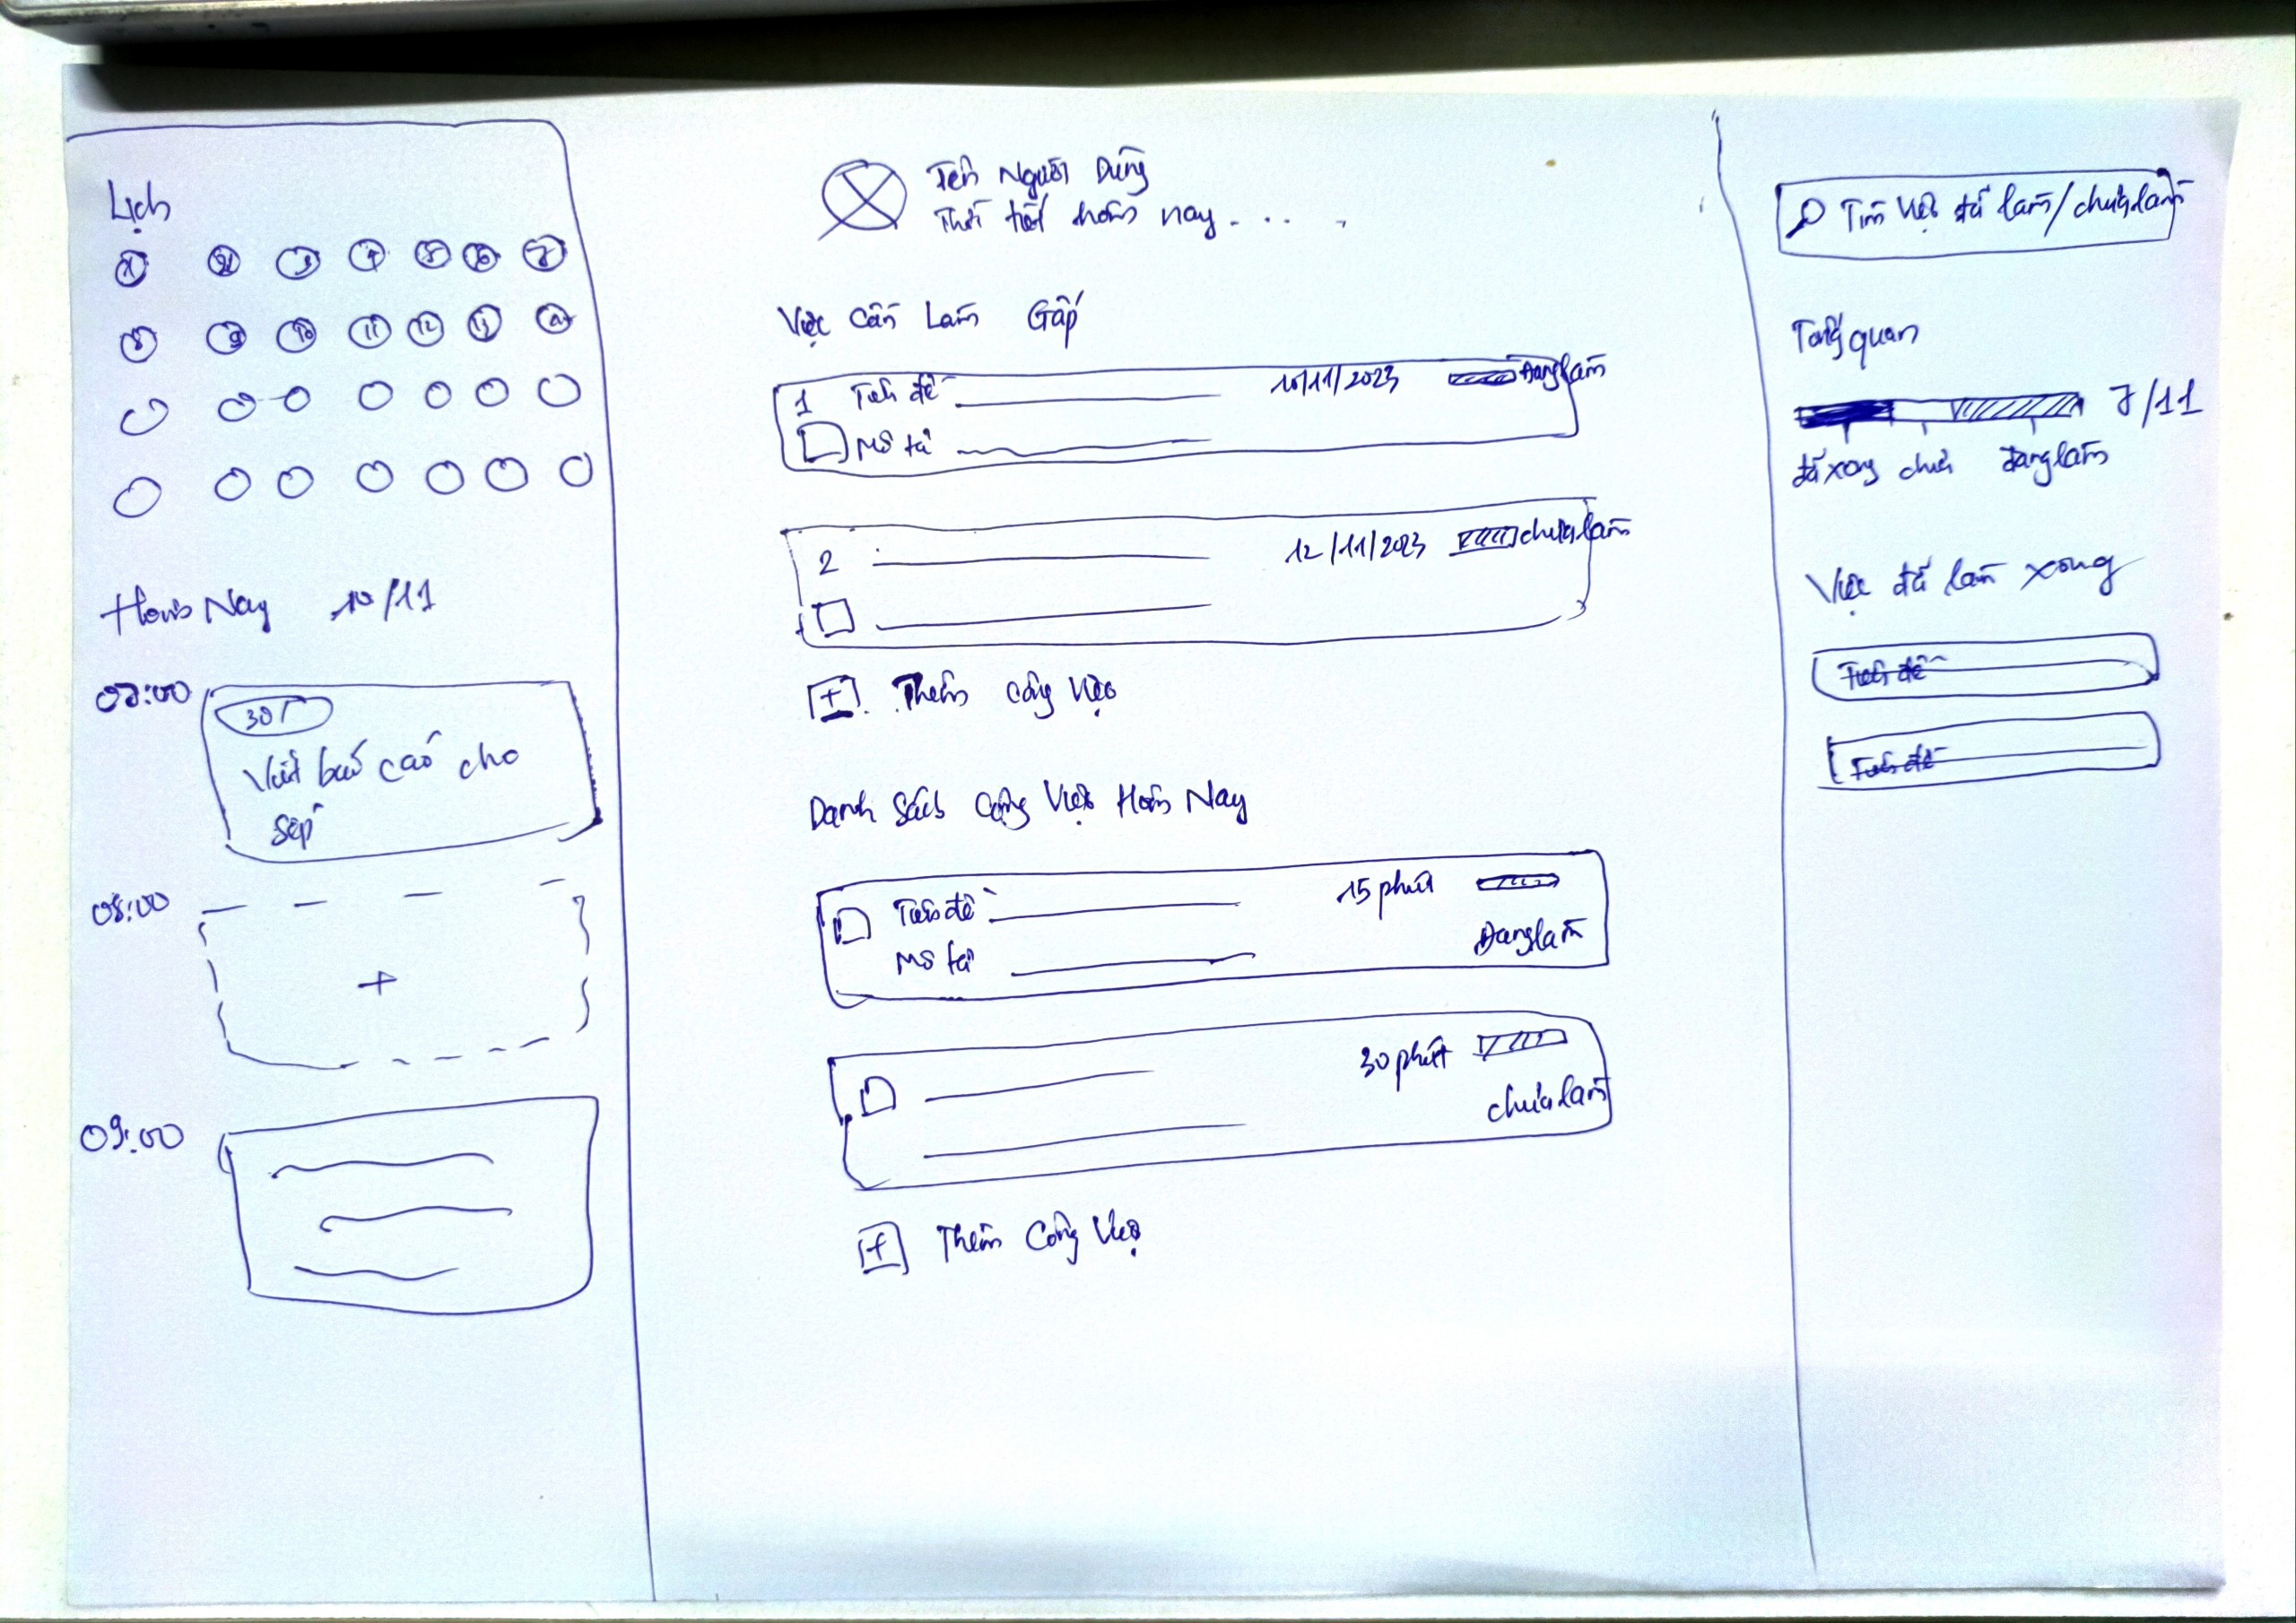 Lịch
1 2 3 4 5 6 7
8 9 10 11 12 13
Hôm Nay 10/11
07:00
30'
Viết báo cáo cho
sếp
08:00
+
09:00
Tên Người Dùng
Thời tiết hôm nay . . . .
Việc Cần Làm Gấp
1 Tiêu đề 10/11/2023 Đang làm
Mô tả
2 12/11/2023 chưa làm
+ Thêm công việc
Danh Sách Công Việc Hôm Nay
Tiêu đề 15 phút
Mô tả Đang làm
30 phút
chưa làm
+ Thêm Công Việc
Tìm việc đã làm/chưa làm
Tổng quan
7/11
đã xong chưa đang làm
Việc đã làm xong
Tiêu đề
Tiêu đề